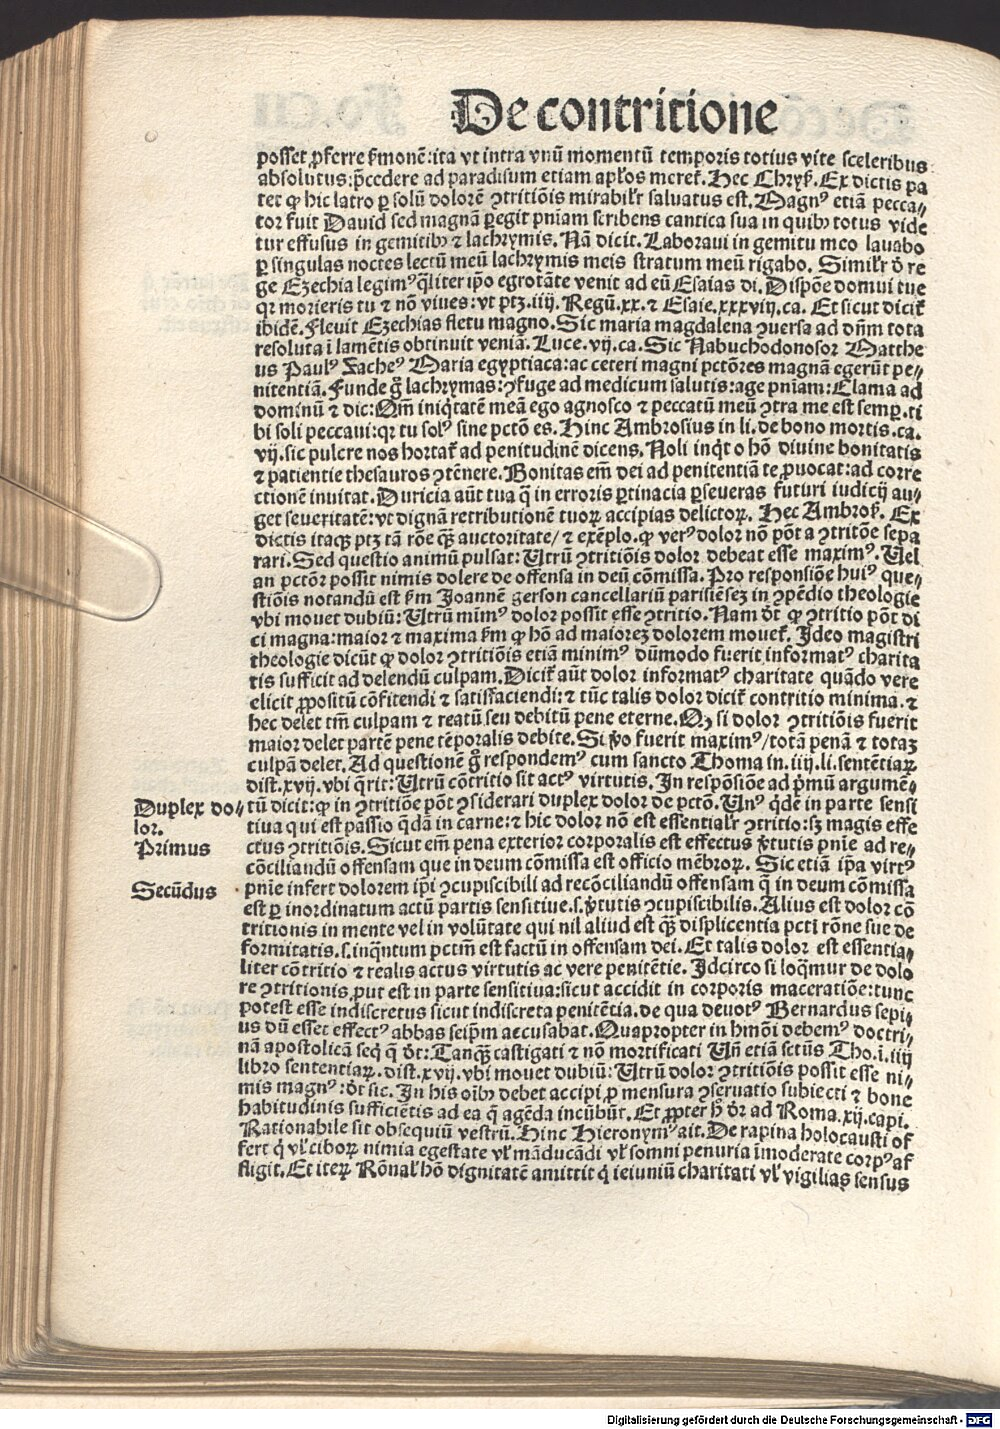 De contritione
posset ꝓferre ẜmonē:ita vt intra vnū momentū temporis totius vite sceleribus
absolutus:p̄cedere ad paradisum etiam apl'os meret᷑. Hec Chryẜ. Ex dictis pa
tet ꝙ hic latro ꝑ solū dolorē ꝯtritiōis mirabil'r saluatus est. Magnꝰ etiā pecca⸗
tor fuit Dauid sed magnā ꝑegit pn̄iam scribens cantica sua in quibꝫ totus vide
tur effusus in gemitibꝫ ⁊ lachrymis. Nā dicit. Laboraui in gemitu meo lauabo
ꝑ singulas noctes lectū meū lachrymis meis stratum meū rigabo. Simil'r ð re
ge Ezechia legimꝰ qͣliter ip̄o egrotāte venit ad eū Esaias di. Dispōe domui tue
qꝛ morieris tu ⁊ nō viues: vt ptꝫ .iiij. Regū.xx. ⁊ Esaie.xxxviij.ca. Et sicut dicit᷑
ibidē. Fleuit Ezechias fletu magno. Sic maria magdalena ꝯuersa ad dn̄m tota
resoluta ī lamētis obtinuit veniā. Luce.vij.ca. Sic Nabuchodonosor Matthe
us Paulꝰ Zacheꝰ Maria egyptiaca: ac ceteri magni pctōres magnā egerūt pe⸗
nitentiā. Funde g̊ lachrymas: ꝯfuge ad medicum salutis: age pn̄iam: Clama ad
dominū ⁊ dic: Qm̄ iniqͥtatē meā ego agnosco ⁊ peccatū meū ꝯtra me est semꝑ. ti
bi soli peccaui: qꝛ tu solꝰ sine pctō es. Hinc Ambrosius in li. de bono mortis.ca.
vij. sic pulcre nos hortat᷑ ad penitudinē dicens. Noli inqͥt o hō diuine bonitatis
⁊ patientie thesauros ꝯtēnere. Bonitas em̄ dei ad penitentiā te ꝓuocat: ad corre
ctionē inuitat. Duricia aūt tua q̄ in erroris ꝑtinacia ꝑseueras futuri iudicij au⸗
get seueritatē: vt dignā retributionē tuoꝝ accipias delictoꝝ. Hec Ambroẜ. Ex
dictis itaqꝫ ptꝫ tā rōe qꝫ̄ auctoritate/ ⁊ exēplo. ꝙ verꝰ dolor nō pōt a ꝯtritōe sepa
rari. Sed questio animū pulsat: Utrū ꝯtritiōis dolor debeat esse maximꝰ. Uel
an pctōr possit nimis dolere de offensa in deū cōmissa. Pro responsiōe huiꝰ que⸗
stiōis notandū est ẜm Joannē gerson cancellariū parisiēseꝫ in ꝯpēdio theologie
vbi mouet dubiū: Utrū mīmꝰ dolor possit esse ꝯtritio. Nam ðt ꝙ ꝯtritio pōt di
ci magna: maior ⁊ maxima ẜm ꝙ hō ad maioreꝫ dolorem mouet᷑. Ideo magistri
theologie dicūt ꝙ dolor ꝯtritiōis etiā minimꝰ dūmodo fuerit informatꝰ charita
tis sufficit ad delendū culpam. Dicit᷑ aūt dolor informatꝰ charitate quādo vere
elicit ꝓpositū cōfitendi ⁊ satisfaciendi: ⁊ tūc talis dolor dicit᷑ contritio minima. ⁊
hec delet tm̄ culpam ⁊ reatū seu debitū pene eterne. Qꝫ si dolor ꝯtritiōis fuerit
maior delet partē pene tēporalis debite. Si v̊o fuerit maximꝰ/totā penā ⁊ totaꝫ
culpā delet. Ad questionē g̊ respondemꝰ cum sancto Thoma in.iiij.li.sentētiaꝝ
dist.xvij. vbi q̄rit: Utrū cōtritio sit actꝰ virtutis. In respōsiōe ad p̄mū argumē⸗
Duplex do⸗
lor.
tū dicit: ꝙ in ꝯtritiōe pōt ꝯsiderari duplex dolor de pctō. Unꝰ qͥdē in parte sensi
tiua qui est passio q̄dā in carne: ⁊ hic dolor nō est essential'r ꝯtritio: sꝫ magis effe
Primus
ctus ꝯtritiōis. Sicut em̄ pena exterior corporalis est effectus v̊tutis pn̄ie ad re⸗
cōciliandū offensam que in deum cōmissa est officio mēbroꝝ. Sic etiā ip̄a virtꝰ
Secūdus
pnīe infert dolorem ip̄i ꝯcupiscibili ad recōciliandū offensam q̄ in deum cōmissa
est ꝑ inordinatum actū partis sensitiue.s. v̊tutis ꝯcupiscibilis. Alius est dolor cō
tritionis in mente vel in volūtate qui nil aliud est qꝫ̄ displicentia pcti rōne sue de
formitatis.s.inqͣntum pctm̄ est factū in offensam dei. Et talis dolor est essentia⸗
liter cōtritio ⁊ realis actus virtutis ac vere penitētie. Idcirco si loqͥmur de dolo
re ꝯtritionis ꝓut est in parte sensitiua: sicut accidit in corporis maceratiōe: tunc
potest esse indiscretus sicut indiscreta penitētia. de qua deuotꝰ Bernardus sepi⸗
us dū esset effectꝰ abbas seip̄m accusabat. Quapropter in hmōi debemꝰ doctri⸗
nā apostolicā seqͥ q̄ ðt: Tanqꝫ̄ castigati ⁊ nō mortificati Un̄ etiā sctūs Tho.ī.iiij
libro sententiaꝝ. dist.xvij. vbi mouet dubiū: Utrū dolor ꝯtritiōis possit esse ni⸗
mis magnꝰ: ðt sic. In his oībꝫ debet accipi ꝓ mensura ꝯseruatio subiecti ⁊ bone
habitudinis sufficiētis ad ea q̄ agēda incūbūt. Et ꝓpter h̊ ðr ad Roma.xij.capi.
Rationabile sit obsequiū vestrū. Hinc Hieronymꝰ ait. De rapina holocausti of
fert qͥ vl' ciboꝝ nimia egestate vl' māducādi vl' somni penuria īmoderate corpꝰ af
fligit. Et iteꝝ Rōnal' hō dignitatē amittit qͥ ieiuniū charitati vl' vigilias sensus